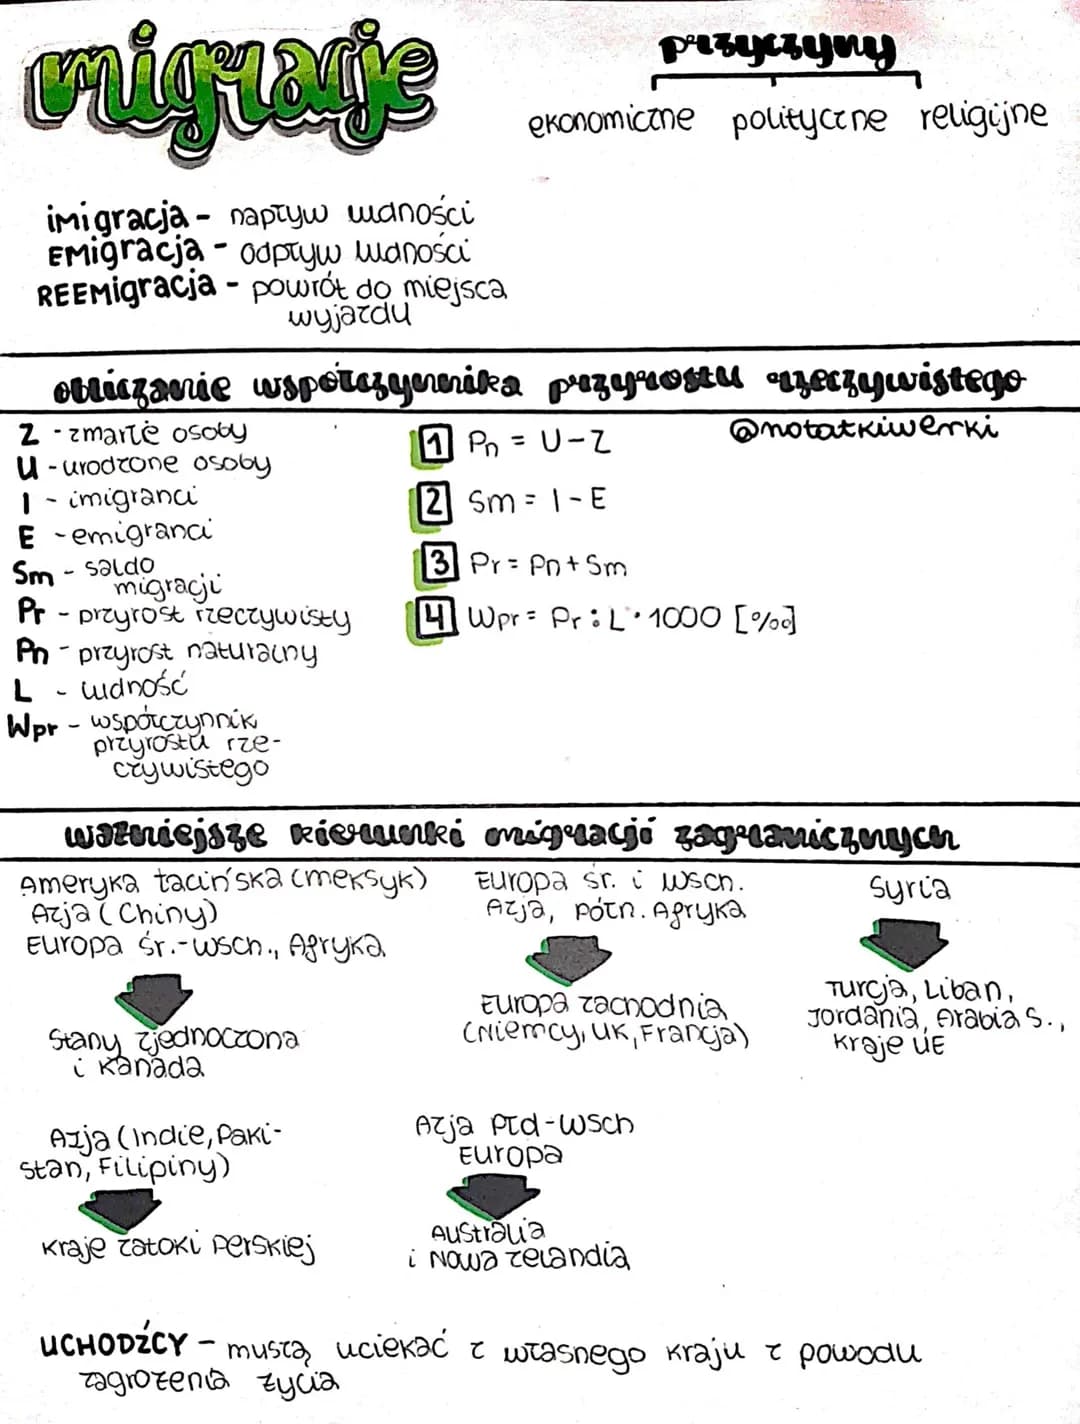 migracje
przyczyny
ekonomiczne polityczne religijne
imigracja - napływ ludności
EMigracja - odpływ ludności
REEMigracja - powrót do miejsca
wyjazdu
obliczanie współczynnika przyrostu rzeczywistego
@notatkiwerki
Z - zmarłe osoby
U - urodzone osoby
I - imigranci
E - emigranci
Sm - saldo
migracji
Pr - przyrost rzeczywisty
Pn - przyrost naturalny
L - ludność
Wpr - współczynnik
przyrostu rze-
czywistego
1 Pn = U-Z
2 Sm = I-E
3 Pr = Pn + Sm
4 Wpr = Pr : L · 1000 [‰]
ważniejsze kierunki migracji zagranicznych
Ameryka łacińska (meksyk)
Azja (Chiny)
Europa śr.-wsch., Afryka
Stany zjednoczona
i Kanada
Europa śr. i wsch.
Azja, półn. Afryka
Europa zachodnia
(Niemcy, UK, Francja)
Syria
Turcja, Liban,
Jordania, Arabia S.,
kraje UE
Azja (Indie, Paki-
stan, Filipiny)
kraje zatoki Perskiej
Azja płd-wsch
Europa
Australia
i Nowa zelandia
UCHODŹCY - muszą uciekać z własnego kraju z powodu
zagrożenia życia